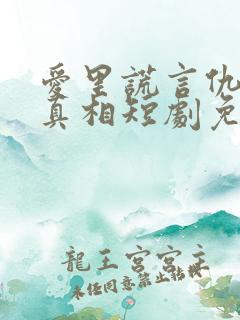 愛里謊言仇
真相短劇免
龍王宮宮主
未经同意禁止转载